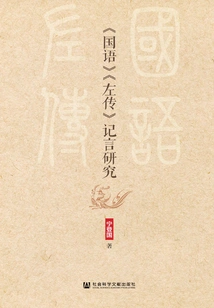 國語
左傳
《国语》《左传》记言研究
宁登国
著
社会科学文献出版社